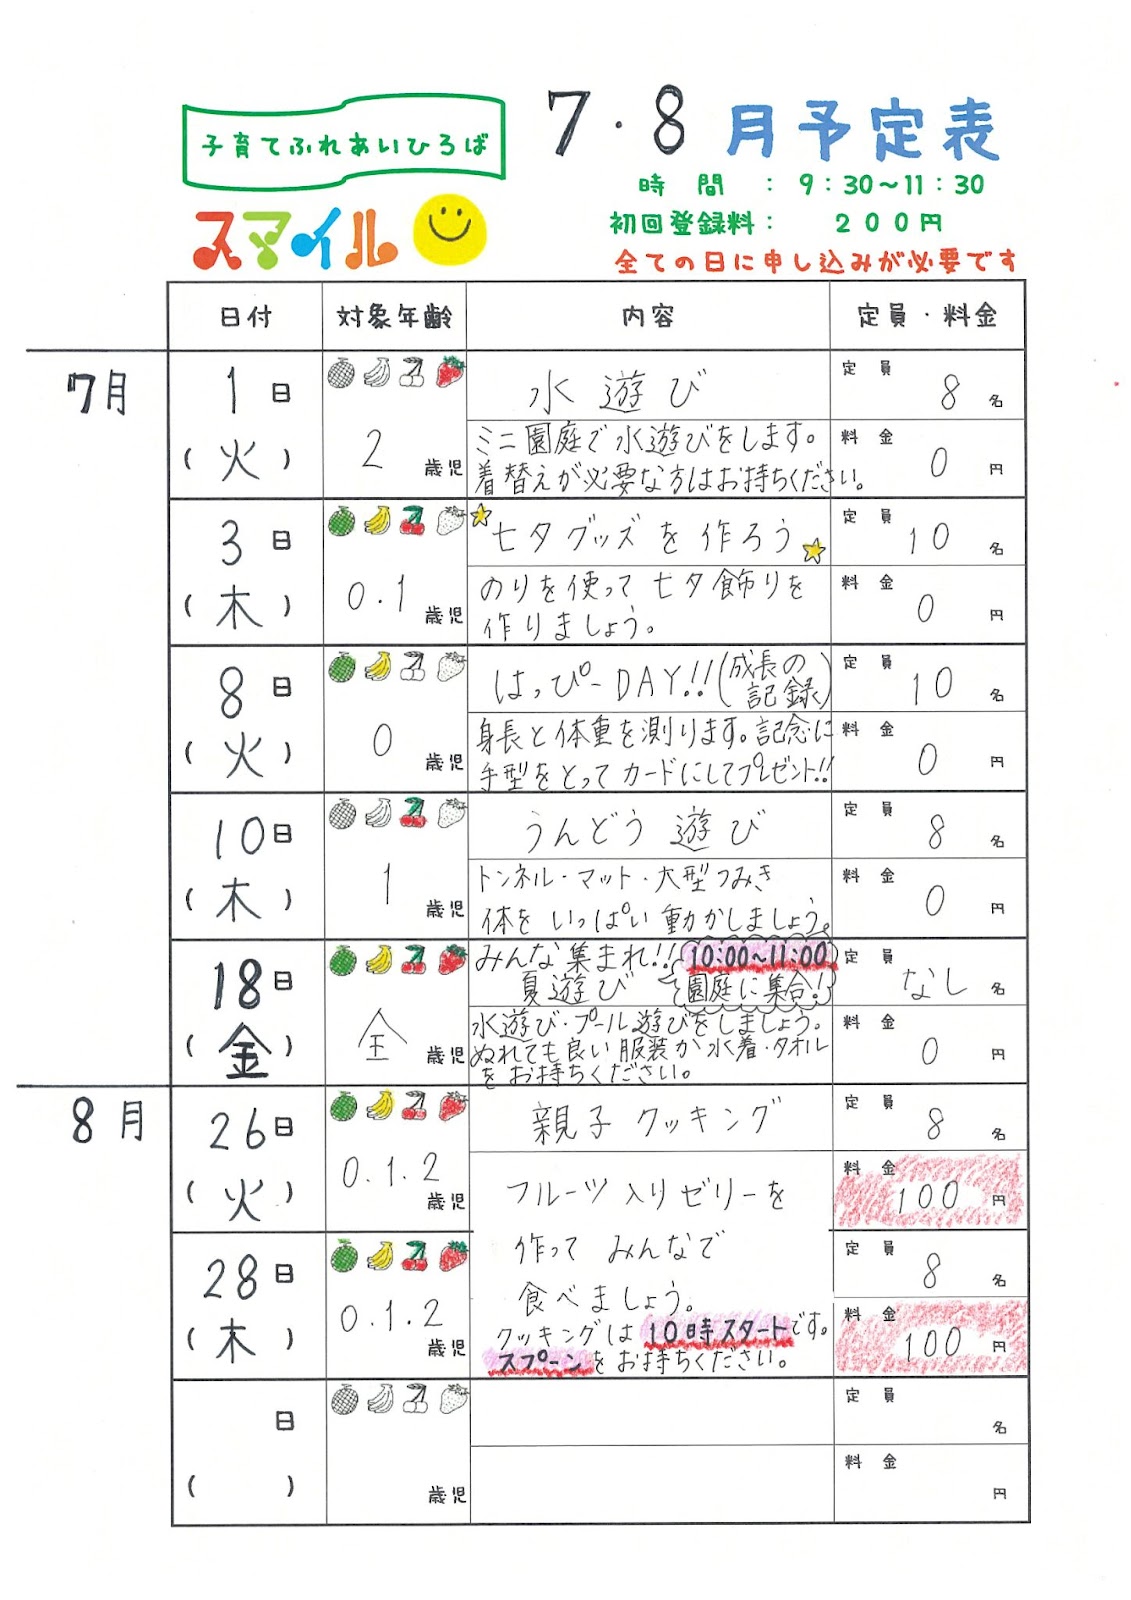 子育てふれあいひろば
7・8月予定表
時間：9:30～11:30
スマイル
初回登録料：200円
全ての日に申し込みが必要です
日付 対象年齢 内容 定員・料金
7月
1日
(火)
2歳児
水遊び
ミニ園庭で水遊びをします。
着替えが必要な方はお持ちください。
定員 8名
料金 0円
3日
(木)
0.1歳児
七夕グッズを作ろう
のりを使って七夕飾りを
作りましょう。
定員 10名
料金 0円
8日
(火)
0歳児
はっぴーDAY!!(成長の
記録)
身長と体重を測ります。記念に
手型をとってカードにしてプレゼント!!
定員 10名
料金 0円
10日
(木)
1歳児
うんどう遊び
トンネル・マット・大型つみき
体をいっぱい動かしましょう。
定員 8名
料金 0円
18日
(金)
全歳児
みんな集まれ!!
夏遊び
10:00~11:00
園庭に集合!
水遊び・プール遊びをしましょう。
ぬれても良い服装か水着・タオル
をお持ちください。
定員 なし名
料金 0円
8月
26日
(火)
0.1.2歳児
親子クッキング
定員 8名
料金 100円
28日
(木)
0.1.2歳児
フルーツ入りゼリーを
作ってみんなで
食べましょう。
クッキングは10時スタートです。
スプーンをお持ちください。
定員 8名
料金 100円
日
( )
歳児
定員 名
料金 円